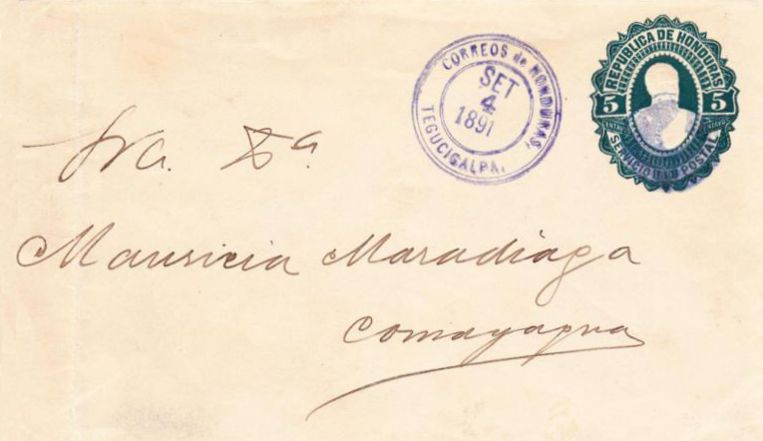 CORREOS de HONDURAS,
SET
4
1891
TEGUCIGALPA.
REPUBLICA DE HONDURAS
5 5
SERVICIO POSTAL
Sra. Dª
Mauricia Maradiaga
Comayagua